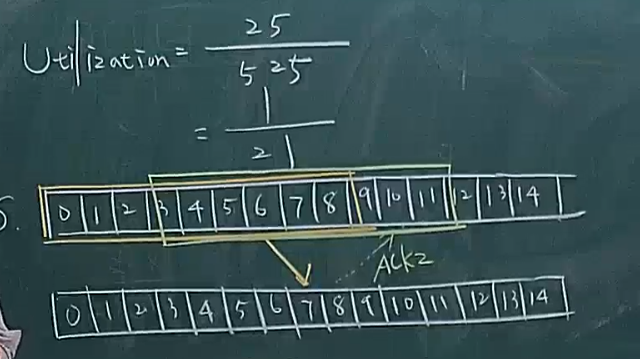 Utilization = 25
525
= 1
21
5. 0 1 2 3 4 5 6 7 8 9 10 11 12 13 14
ACK2
0 1 2 3 4 5 6 7 8 9 10 11 12 13 14